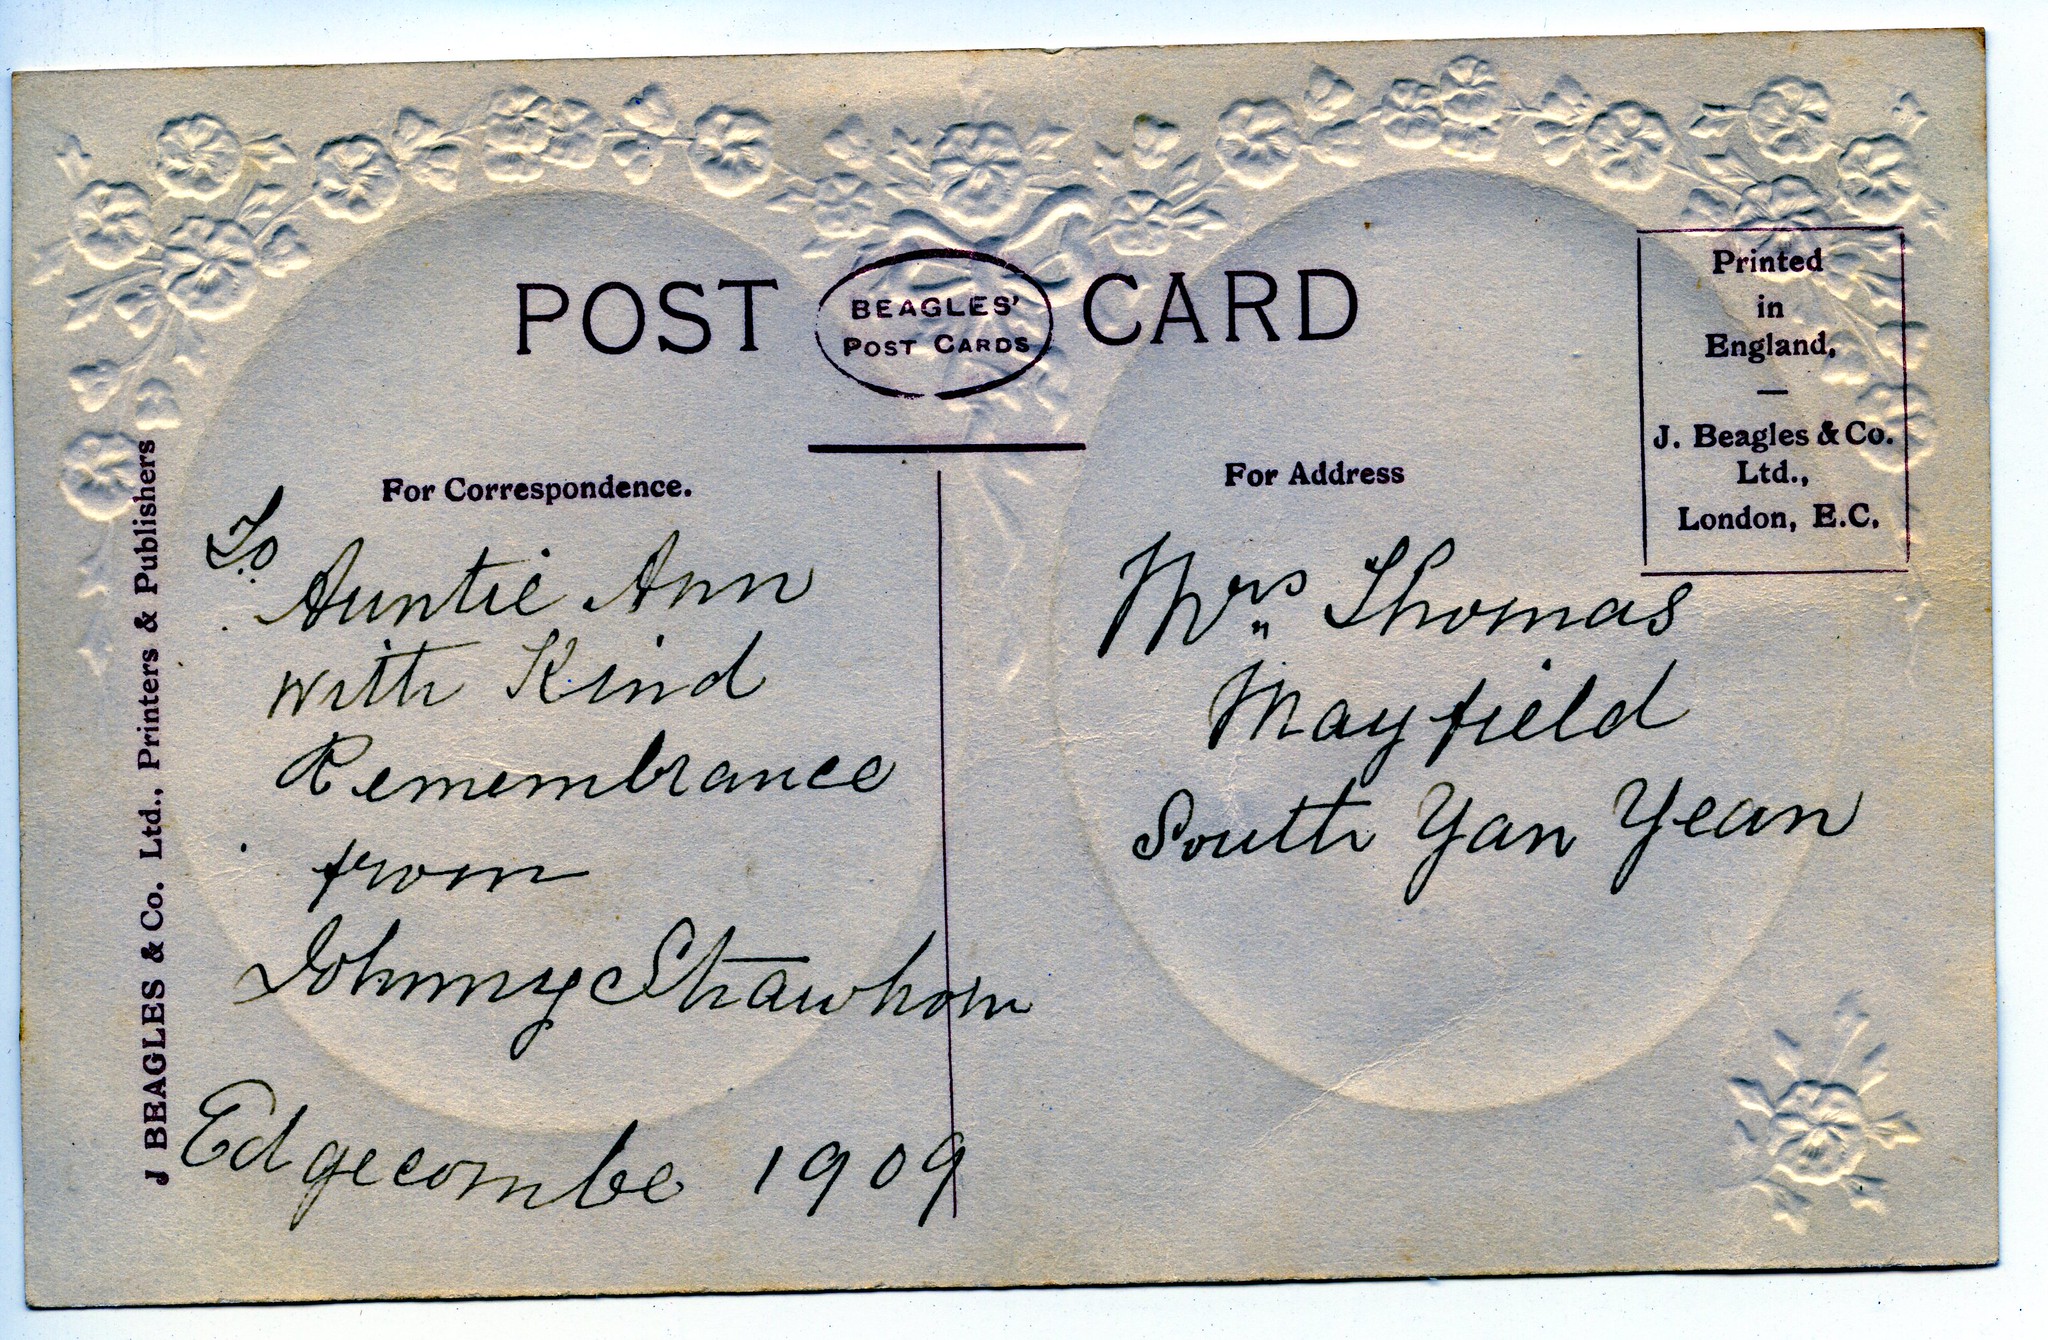 POST CARD
BEAGLES'
POST CARDS
Printed
in
England.
—
J. Beagles & Co.
Ltd.,
London, E.C.
J BEAGLES & Co. Ltd., Printers & Publishers
For Correspondence.
To
Auntie Ann
with Kind
Remembrance
from
Johnny Strawhorn
Edgecombe 1909
For Address
Mrs Thomas
Mayfield
South Yan Yean